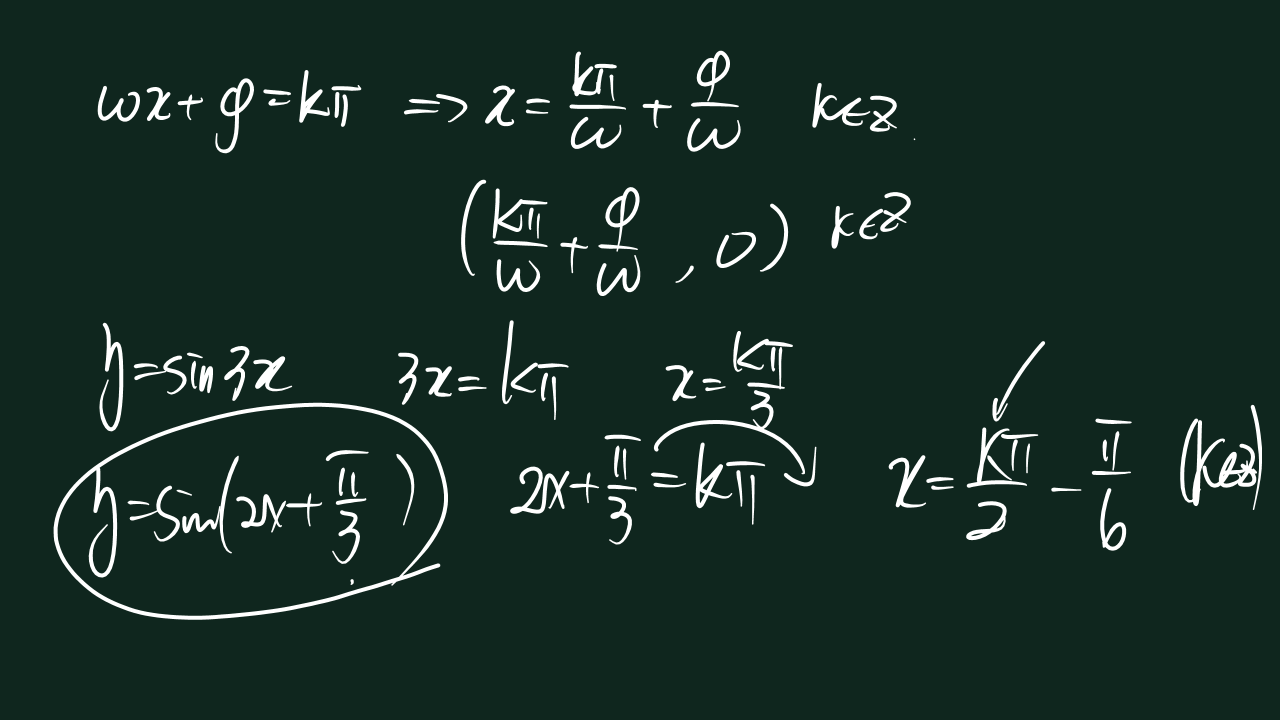 ωx+φ=kπ ⇒ x=kπ/ω+φ/ω k∈z
(kπ/ω+φ/ω , 0) k∈z
y=sin3x 3x=kπ x=kπ/3
y=sin(2x+π/3) 2x+π/3=kπ x=kπ/2-π/6 (k∈z)